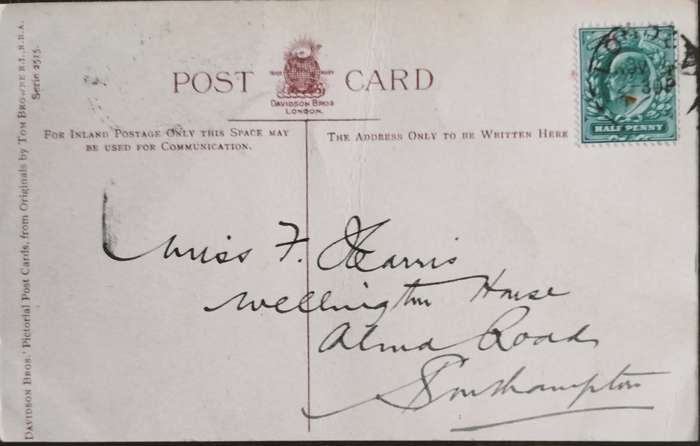 POST CARD
TRADE MARK
DAVIDSON BROS
LONDON.
FOR INLAND POSTAGE ONLY THIS SPACE MAY
BE USED FOR COMMUNICATION.
THE ADDRESS ONLY TO BE WRITTEN HERE
HALF PENNY
Miss F. Harris
Wellington House
Alma Road
Southampton
DAVIDSON BROS.' Pictorial Post Cards, from Originals by TOM BROWNE R.I., R.B.A.
Serie 2515.